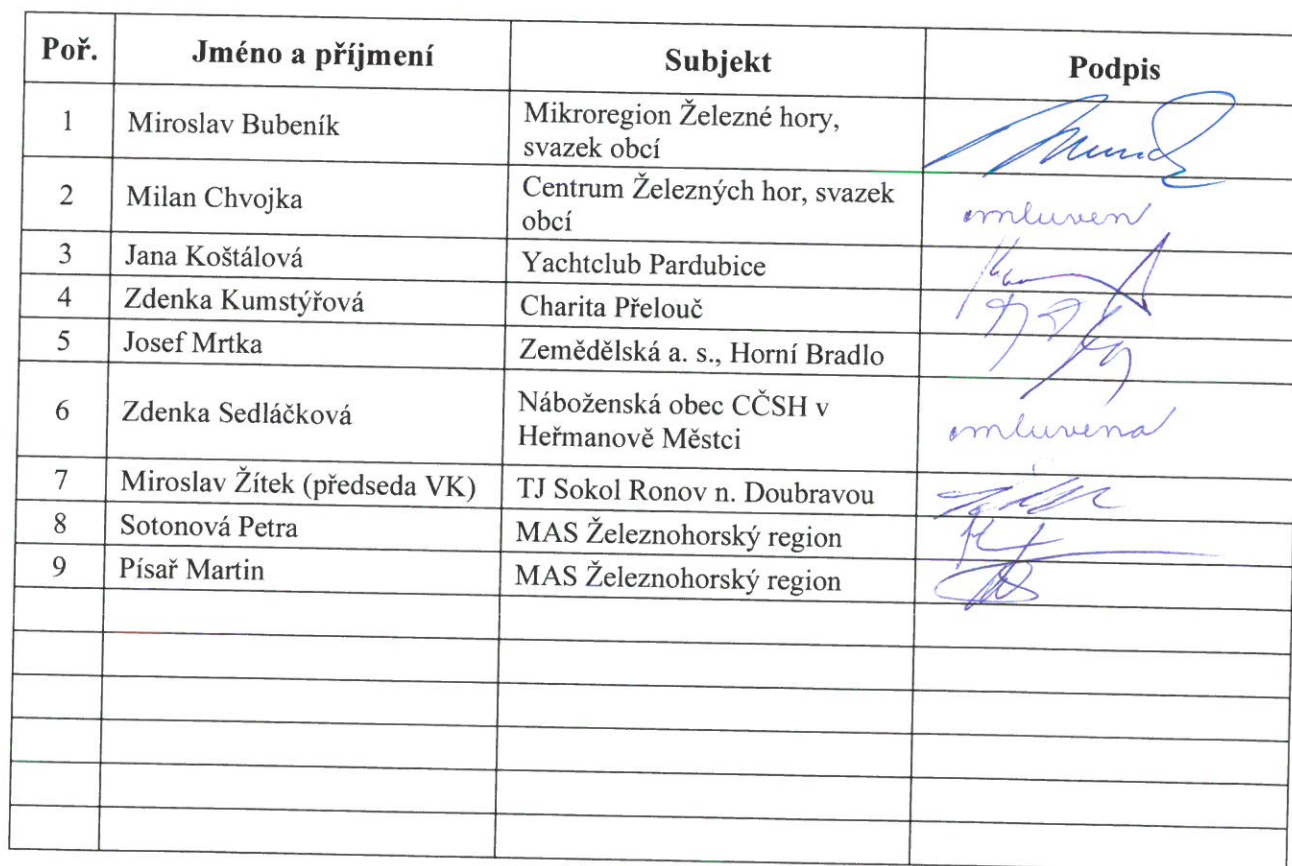 Poř. Jméno a příjmení Subjekt Podpis
1 Miroslav Bubeník Mikroregion Železné hory,
svazek obcí
2 Milan Chvojka Centrum Železných hor, svazek
obcí omluven
3 Jana Koštálová Yachtclub Pardubice
4 Zdenka Kumstýřová Charita Přelouč
5 Josef Mrtka Zemědělská a. s., Horní Bradlo
6 Zdenka Sedláčková Náboženská obec CČSH v
Heřmanově Městci omluvena
7 Miroslav Žítek (předseda VK) TJ Sokol Ronov n. Doubravou
8 Sotonová Petra MAS Železnohorský region
9 Písař Martin MAS Železnohorský region